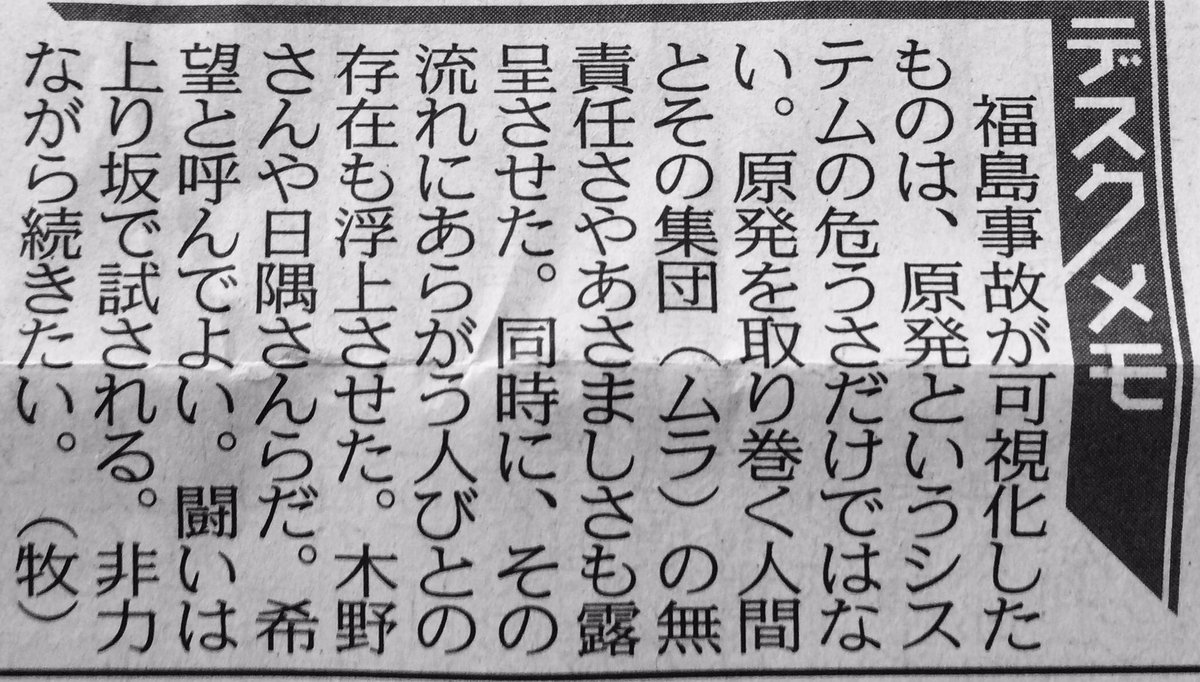 デスクメモ
福島事故が可視化した
ものは、原発というシス
テムの危うさだけではな
い。原発を取り巻く人間
とその集団（ムラ）の無
責任さやあさましさも露
呈させた。同時に、その
流れにあらがう人びとの
存在も浮上させた。木野
さんや日隅さんらだ。希
望と呼んでよい。闘いは
上り坂で試される。非力
ながら続きたい。（牧）